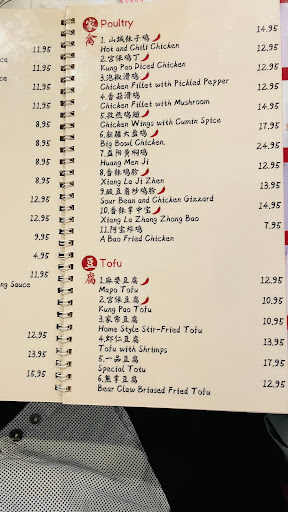 11.95
11.95
11.95
8.95
8.95
9.95
12.95
12.95
9.95
4.95
11.95
ng Sauce
12.95
13.95
15.95
家禽 Poultry
1.山城辣子鸡
Hot and Chili Chicken 14.95
2.宫保鸡丁
Kung Pao Diced Chicken 12.95
3.泡椒滑鸡
Chicken Fillet with Pickled Pepper 14.95
4.香菇滑鸡
Chicken Fillet with Mushroom 14.95
5.孜然鸡翅
Chicken Wings with Cumin Spice 17.95
6.新疆大盘鸡
Big Bowl Chicken. 24.95
7.益阳黄焖鸡
Huang Men Ji
8.香辣鸡胗
Xiang La Ji Zhen
9.酸豆角炒鸡胗
Sour Bean and Chicken Gizzard
10.香辣掌中宝
Xiang La Zhang Zhong Bao 17.95
11.阿宝炸鸡
A Bao Fried Chicken 7.95
豆腐 Tofu
1.麻婆豆腐
Mapo Tofu
2.宫保豆腐
Kung Pao Tofu
3.家常豆腐
Home Style Stir-Fried Tofu
4.虾仁豆腐
Tofu with Shrimps
5.一品豆腐
Special Totu
6.熊掌豆腐
Bear Claw Briased Fried Tofu 12.95